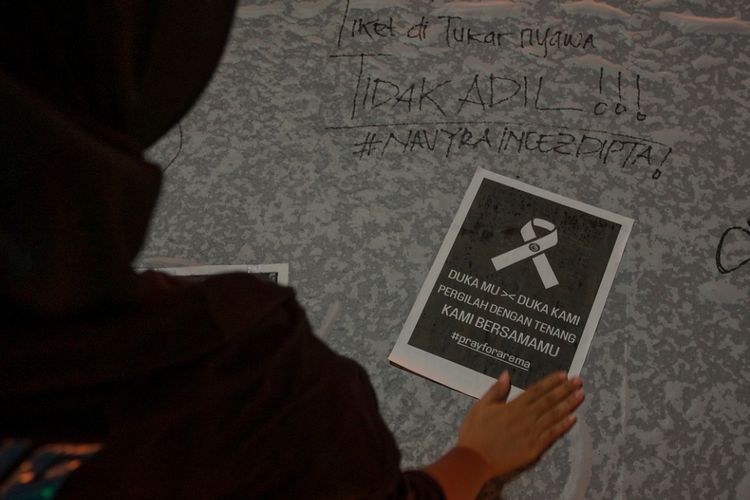 Tiket di Tukar nyawa
TIDAK ADIL !!!
DUKA MU >< DUKA KAMI
PERGILAH DENGAN TENANG
KAMI BERSAMAMU
#prayforarema